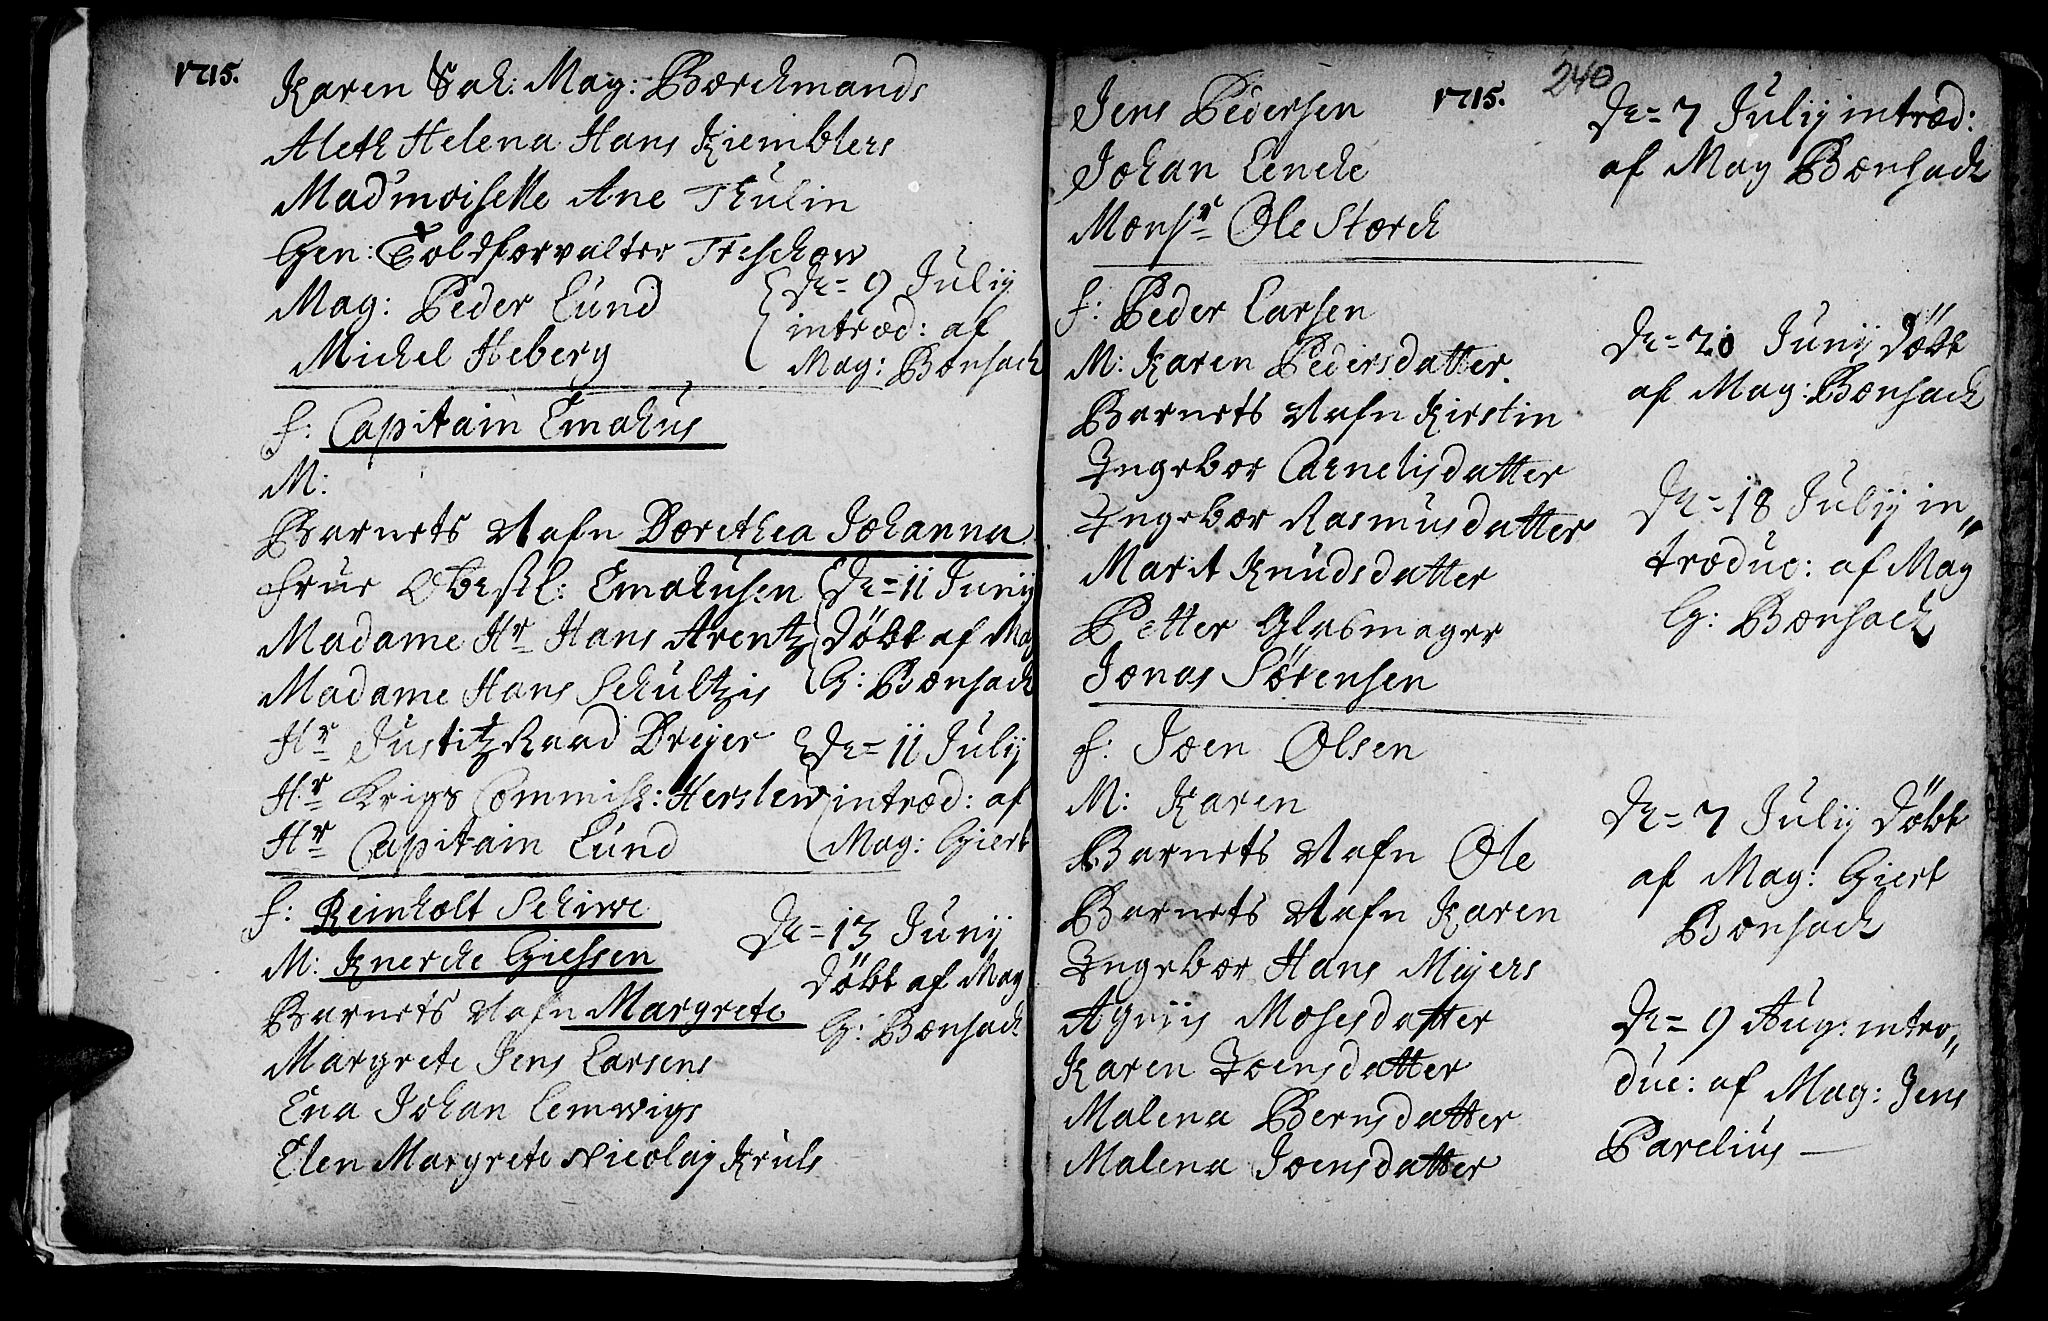 1715.
Karen Sal: Mag: Borchmands
Aleth Helena Hans Kiemblers
Mad'moiselle Ane Thulin
Gen: Toldforvalter Treschow
Mag: Peder Lund
Michel Heberg
{ Dn= 9 Julij
introd: af
Mag: Bonsach
f: Capitain Emahus
M:
Barnets Nafn Dorethea Johanna
Frue Oberstl: Emahusen
Madame Hr Hans Arentz
Madame Hans Schultzis
{ Dn= 11 Junij
Döbt af Mag
G: Bonsach
Hr Justitz Raad Dreyer
Hr Krigs Commiss: Herslew
Hr Capitain Lund
{ Dn= 11 Julij
introd: af
Mag: Giert
f: Reinholt Schiwe
M: Knerche Giessen
Barnets Nafn Margrete
Margrete Jens Larsens
Ena Johan Lemwigs
Elen Margrete Nicolaij Kruls
Dn= 13 Junij
Döbt af Mag
G: Bonsach
1715.
240
Jens Pedersen
Johan Lenche
Monsr Ole Storch
Dn= 7 Julij introd:
af Mag Bonsach
f: Peder Larsen
M: Karen Pedersdatter
Barnets Nafn Kirstin
Ingebor Cornelisdatter
Ingebor Rasmusdatter
Marit Knudsdatter
Petter Glasmager
Jonas Sörensen
Dn= 20 Junij Döbt
af Mag: Bonsach
Dn= 18 Julij in„
troduc: af Mag
G: Bonsach
f: Joen Olsen
M: Karen
Barnets Nafn Ole
Barnets Nafn Karen
Ingebor Hans Meyers
Agniis Mosesdatter
Karen Joensdatter
Malena Bernsdatter
Malena Joensdatter
Dn= 7 Julij Döbt
af Mag: Giert
Bonsach
Dn= 9 Aug: intro„
duc: af Mag: Jens
Parelius —